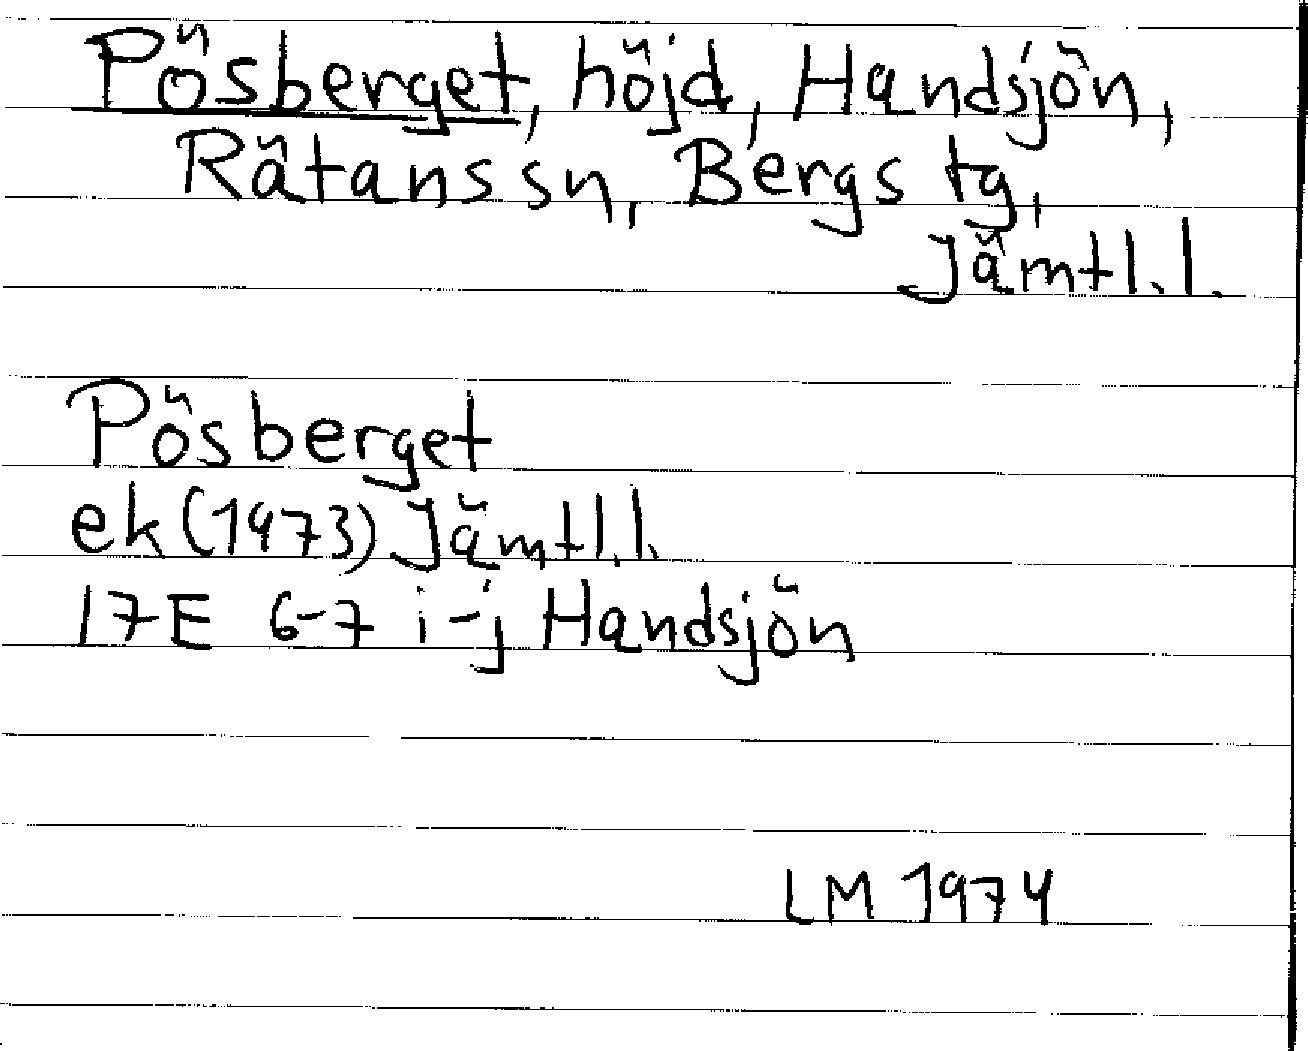 Pösberget, höjd, Handsjön,
Rätans sn, Bergs tg,
Jämtl. l.
Pösberget
ek (1973) Jämtl. l.
17E 6-7 i-j Handsjön
LM 1974